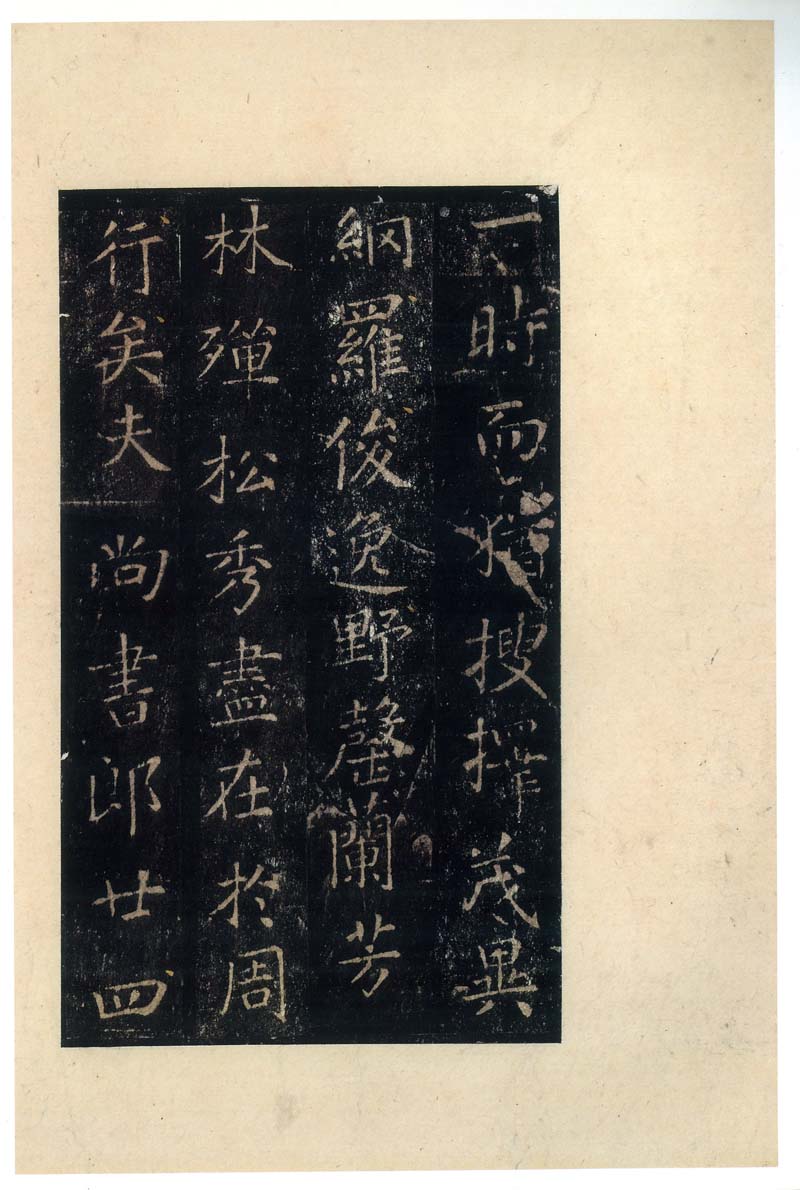 一時而精搜擇茂異
網羅俊逸野罄蘭芳
林殫松秀盡在於周
行矣夫尚書郎廿四